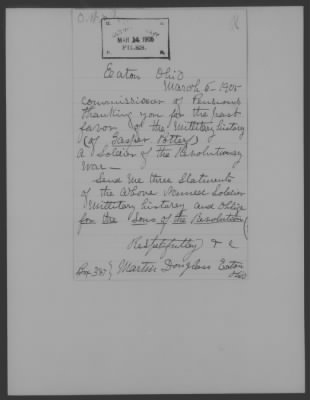 MAR 14 1905
FILES.
Eaton Ohio
March 6 - 1905
Commissioner of Pensions
thanking you for the past
favor of the Millitery history
(of Gasper Potter)
a Soldier of the Revolutionary
War —
Send me three Statments
of the above Named Soldier
Millitery history and Oblige
for the Sons of the Revolution
Respetfutty & c
Box 387 } Martin Douglass Eaton
Ohio